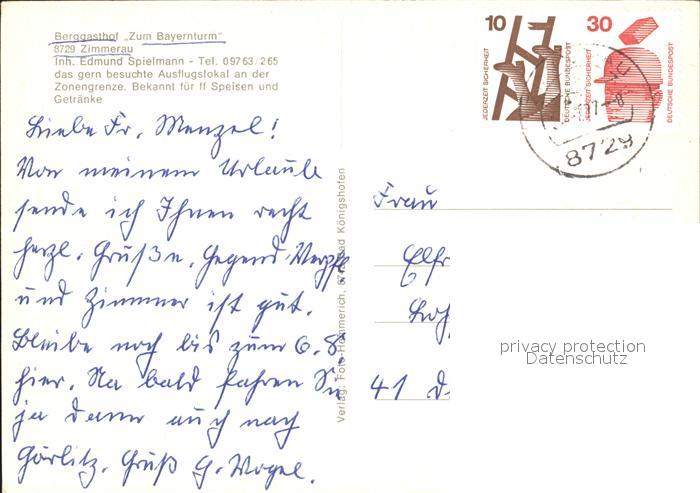 Berggasthof „Zum Bayernturm"
8729 Zimmerau
Inh. Edmund Spielmann - Tel. 09763/265
das gern besuchte Ausflugslokal an der
Zonengrenze. Bekannt für ff Speisen und
Getränke
Liebe Fr. Menzel!
Von meinem Urlaub
sende ich Ihnen recht
herzl. Grüße. Gegend Verpfl
und Zimmer ist gut.
Bleibe noch bis zum 6. 8.
hier. Na bald fahren Sie
ja dann auch nach
Görlitz. Gruß G. Vogel.
Verlag: Foto-Hümmerich, Bad Königshofen
10
JEDERZEIT SICHERHEIT
DEUTSCHE BUNDESPOST
30
JEDERZEIT SICHERHEIT
DEUTSCHE BUNDESPOST
8729
Frau
Elfr
41 D
privacy protection
Datenschutz